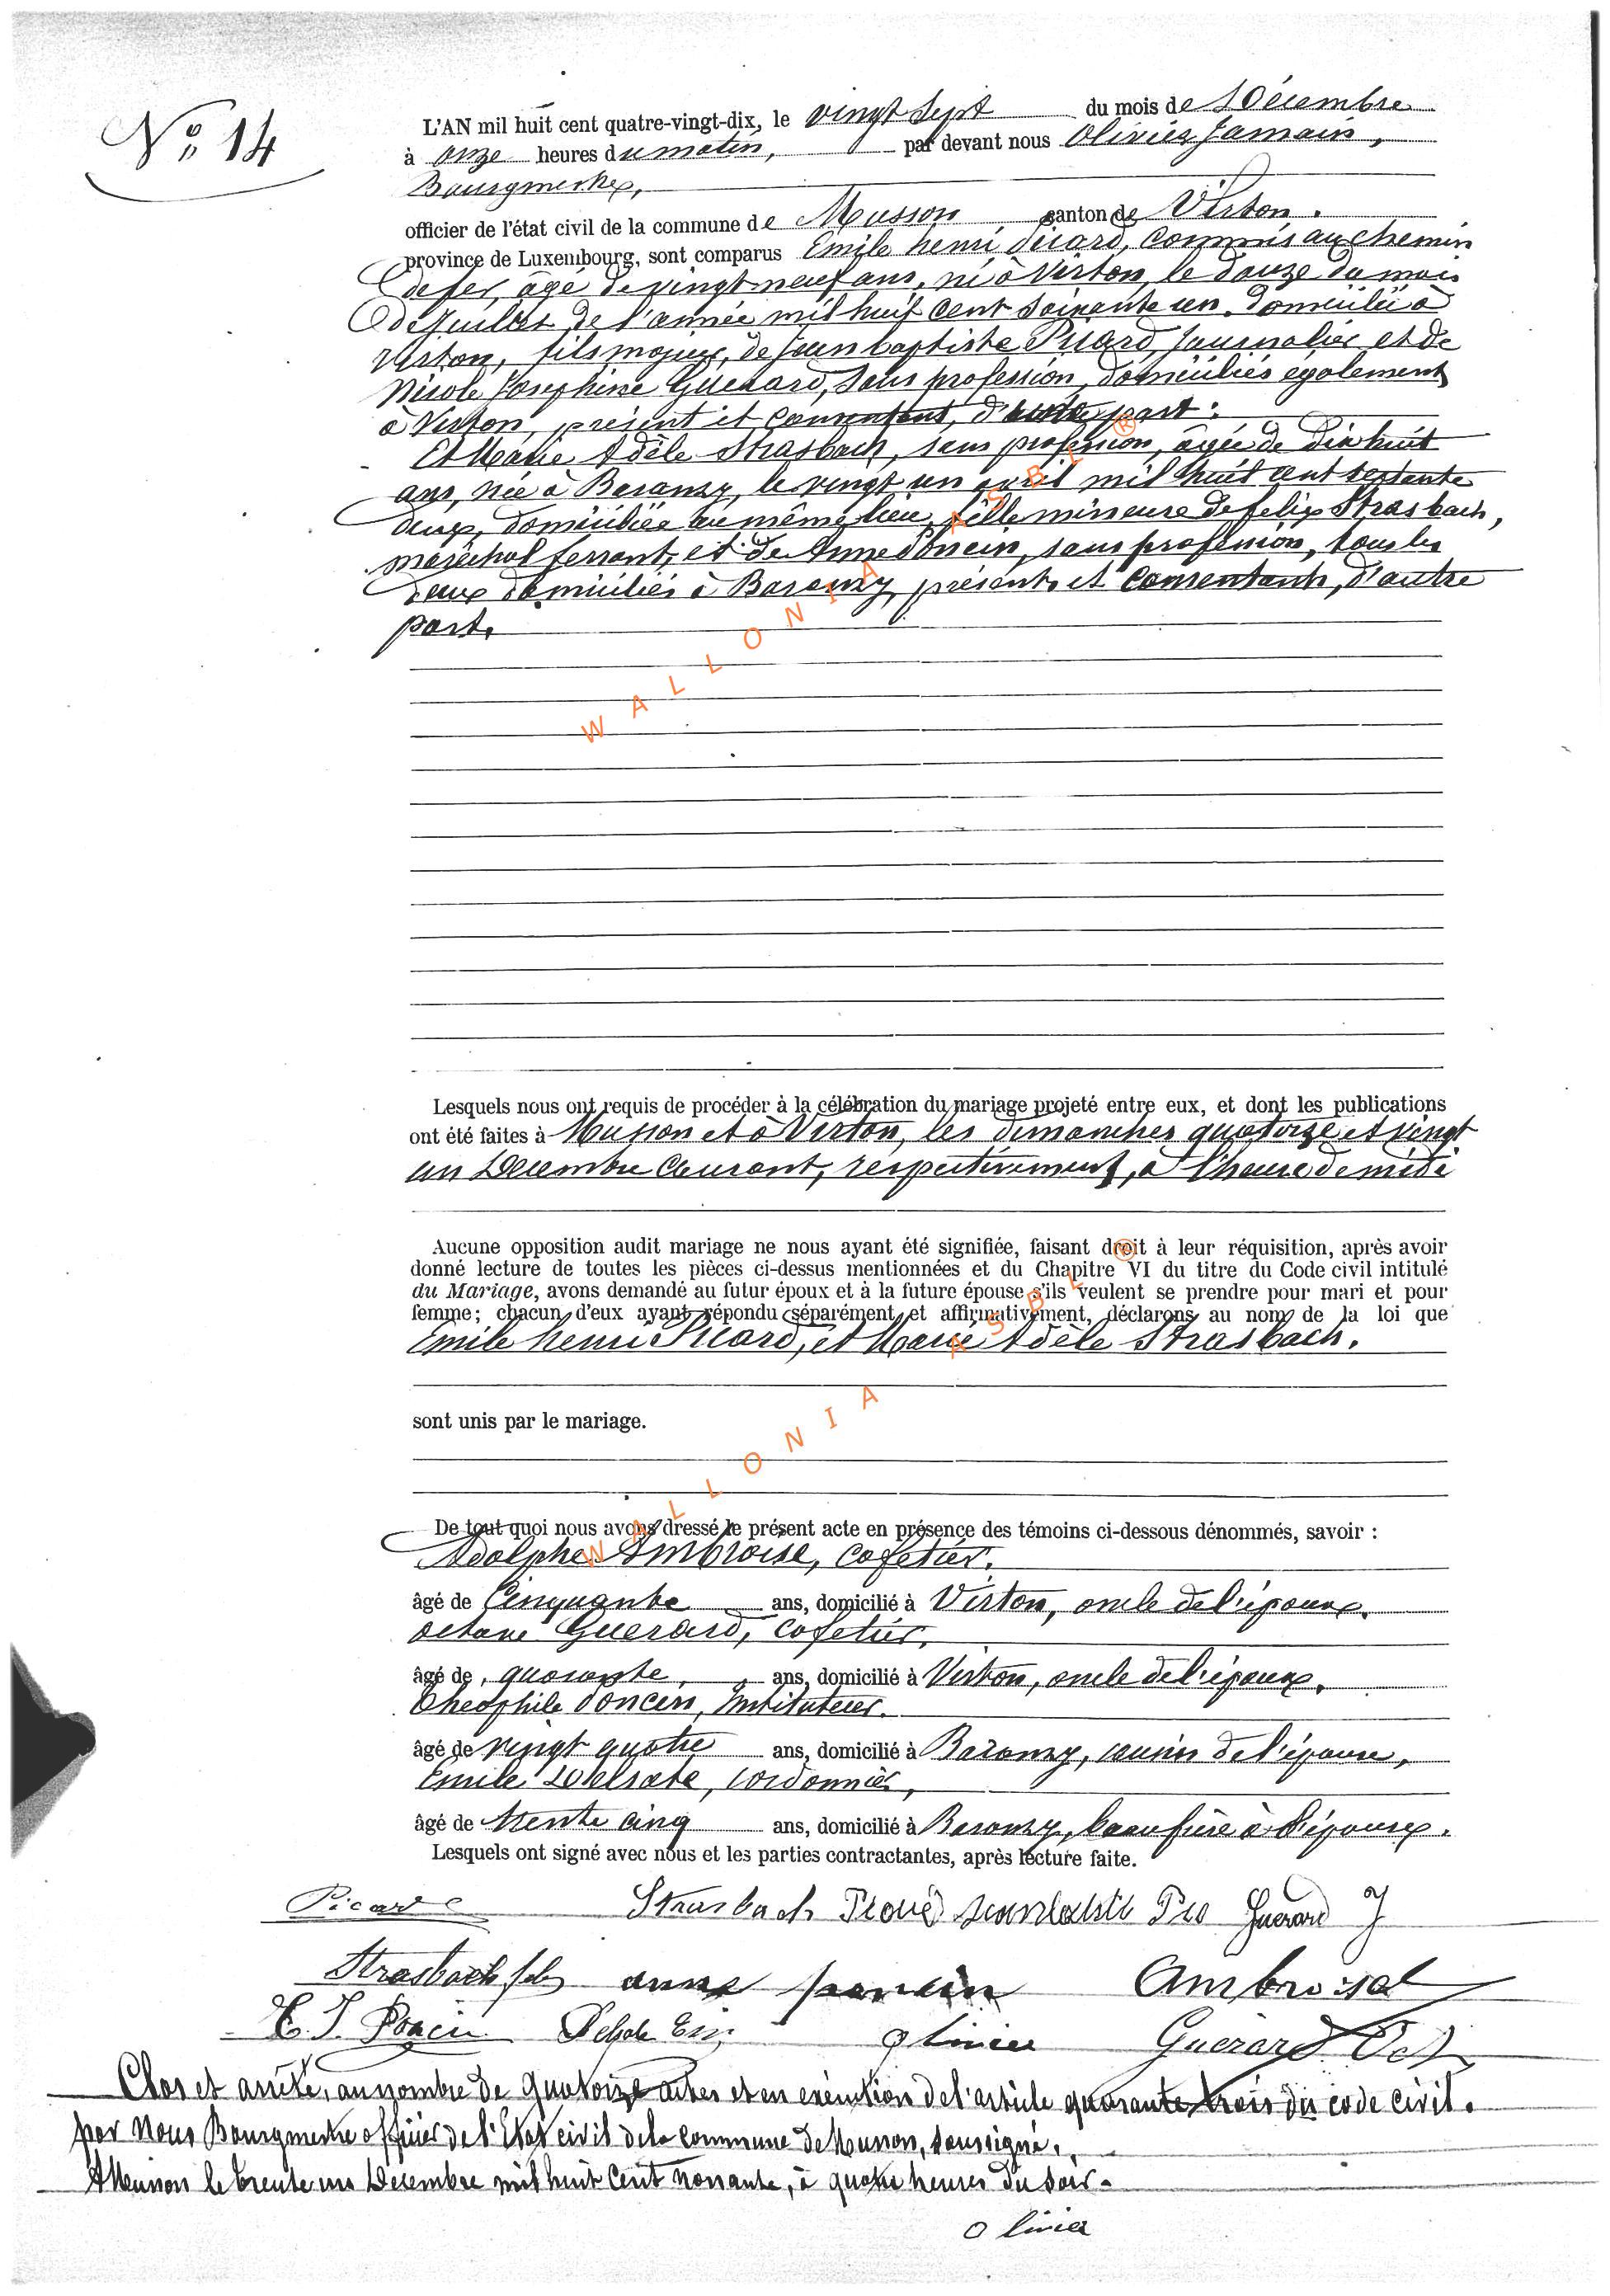 N° 14
L'AN mil huit cent quatre-vingt-dix, le vingt sept du mois de Décembre
à onze heures du matin, par devant nous Olivier Jamain,
Bourgmestre,
officier de l'état civil de la commune de Musson canton de Virton.
province de Luxembourg, sont comparus Emile henri Picard, commis au chemin
de fer, âgé de vingt neuf ans, né à Virton, le douze du mois
de Juillet de l'année mil huit cent soixante un, domicilié à
Virton, fils majeur, de Jean baptiste Picard, Journalier et de
Nicole Josephine Guerard, sans profession, domiciliés également
à Virton, présent et consentant, d'une part:
Et Marie Adèle Strasbach, sans profession, âgée de dix huit
ans, née à Baranzy, le vingt un avril mil huit cent septante
deux, domiciliée au même lieu, fille mineure de felix Strasbach,
maréchal ferrant, et de Anne Poncin, sans profession, tous les
deux domiciliés à Baranzy, présents et consentants, d'autre
part.
Lesquels nous ont requis de procéder à la célébration du mariage projeté entre eux, et dont les publications
ont été faites à Musson et à Virton, les dimanches quatorze et vingt
un Décembre courant, respectivement, à l'heure de midi
Aucune opposition audit mariage ne nous ayant été signifiée, faisant droit à leur réquisition, après avoir
donné lecture de toutes les pièces ci-dessus mentionnées et du Chapitre VI du titre du Code civil intitulé
du Mariage, avons demandé au futur époux et à la future épouse s'ils veulent se prendre pour mari et pour
femme; chacun d'eux ayant répondu séparément et affirmativement, déclarons au nom de la loi que
Emile henri Picard, et Marie Adèle Strasbach.
sont unis par le mariage.
De tout quoi nous avons dressé le présent acte en présence des témoins ci-dessous dénommés, savoir :
Adolphe Ambroise, cafetier.
âgé de Cinquante ans, domicilié à Virton, oncle de l'époux.
octave Guerard, cafetier.
âgé de quarante ans, domicilié à Virton, oncle de l'époux.
Théophile Poncin, Instituteur.
âgé de vingt quatre ans, domicilié à Baranzy, cousin de l'épouse,
Emile Delsate, cordonnier,
âgé de trente cinq ans, domicilié à Baranzy, beau frère à l'époux.
Lesquels ont signé avec nous et les parties contractantes, après lecture faite.
Picard E Strasbach Guerard J
Strasbach felix anne poncin Ambroise
Poncin olivier Guérard Oct
Clos et arrêté, au nombre de Quatorze actes et en exécution de l'article quarante trois du code civil.
par Nous Bourgmestre officier de l'Etat civil de la Commune de Musson, soussigné.
A Musson le trente un Décembre mil huit cent nonante, à quatre heures du soir.
olivier
WALLONIA ASBL ®
WALLONIA ASBL ®